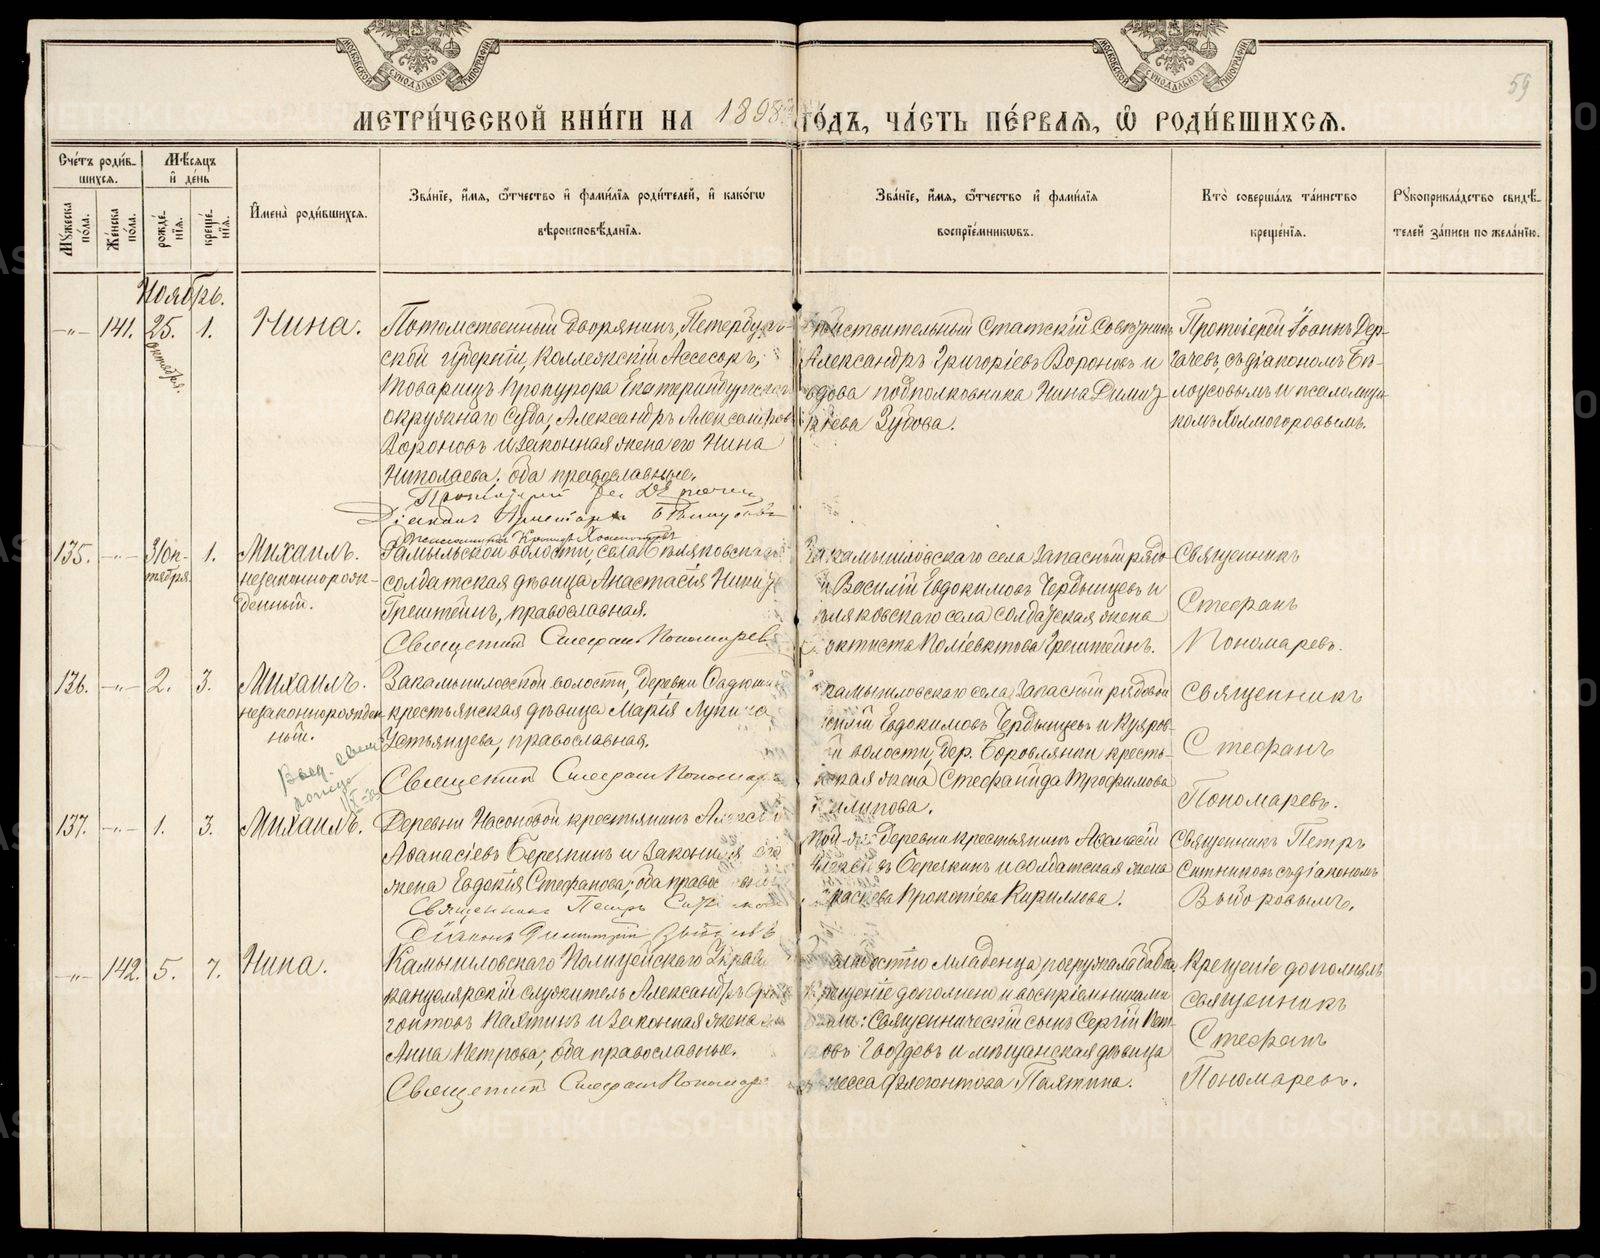 МОСКОВСКОЙ СѴНОДАЛЬНОЙ ТИПОГРАФІИ
МОСКОВСКОЙ СѴНОДАЛЬНОЙ ТИПОГРАФІИ
59
МЕТРИ́ЧЕСКОЙ КНИ́ГИ НА 1898 ГО́ДЪ, ЧА́СТЬ ПЕ́РВАѦ, Ѽ РОДИ́ВШИХСѦ.
Сче́тъ роди́в-
шихсѧ.
Мѣ́сѧцъ
и҆ де́нь
Мꙋ́жеска по́ла.
Же́нска по́ла.
рожде́-
нїѧ.
креще́-
нїѧ.
И҆мена̀ роди́вшихсѧ.
Зва́нїе, и҆́мѧ, ѻ҆́тчество и҆ фами́лїѧ роди́телей, и҆ како́гѡ
вѣроисповѣ́данїѧ.
Зва́нїе, и҆́мѧ, ѻ҆́тчество и҆ фами́лїѧ
воспрїе́мникѡвъ.
Кто̀ соверша́лъ та́инство
креще́нїѧ.
Рꙋкоприкла́дство свидѣ́-
телей за́писи по жела́нїю.
Ноябрь.
-„- 141. 25. октября. 1. Нина.
Потомственный Дворянинъ, Петербург-
ской губерніи, Коллежскій Ассесоръ,
Товарищъ Прокурора Екатеринбургскаго
окружнаго Суда, Александръ Александров
Вороновъ и законная жена его Нина
Николаева; оба православные.
Діаконъ
Дѣйствительный Статскій Совѣтникъ
Александръ Григоріевъ Вороновъ и
вдова подполковника Нина Димит
ріева Зубова.
Протоіерей Іоаннъ Дер-
гачевъ, съ діакономъ Бѣ-
лоусовымъ и псаломщи
комъ Холмогоровымъ.
135. -„- 31 ок-
тября. 1. Михаилъ.
незаконнорож-
денный.
волости, села
солдатская дѣвица Анастасія Никит
Грештейнъ, православная.
Священникъ Стефанъ Пономаревъ
Закамышловскаго села запасный рядо-
й Василій Евдокимовъ Чердынцевъ и
села солдатская жена
Поліевктова Грештейнъ.
Священникъ
Стефанъ
Пономаревъ.
136. -„- 2. 3. Михаилъ.
незаконнорожден
ный.
Закамышловской волости, деревни
крестьянская дѣвица Марія Лукина
Устьянцева, православная.
Священникъ Стефанъ Пономар
камышловскаго села запасный рядовой
силій Евдокимовъ Чердынцевъ и Куяров-
й волости, дер. Боровлянки кресть-
нская жена Стефанида Трофимова
илипова.
Священникъ
Стефанъ
Пономаревъ.
137. -„- 1. 3. Михаилъ.
Деревни Насоновой крестьянинъ Алексѣй
Аѳанасіевъ Березкинъ и законная его
жена Евдокія Стефанова; оба православные
Священникъ Петръ Ситниковъ
Діаконъ Димитрій
деревни крестьянинъ Аѳанасій
Березкинъ и солдатская жена
Прокопіева Кирилова.
Священникъ Петръ
Ситниковъ съ діакономъ
Выборовымъ.
-„- 142. 5. 7. Нина.
Камышловскаго Полицейскаго Управ
канцелярскій служитель Александръ Фле
гонтовъ Палтинъ и законная жена
Анна Петрова; оба православные.
Священникъ Стефанъ Пономар
слабостію младенца, погружала бабка,
крещеніе дополнено и воспріемниками
были: Священническій сынъ Сергій Пет-
ровъ Гвоздевъ и мѣщанская дѣвица
Флегонтова Палтина.
Крещеніе дополнялъ
Священникъ
Стефанъ
Пономаревъ.
METRIKI.GASO-URAL.RU